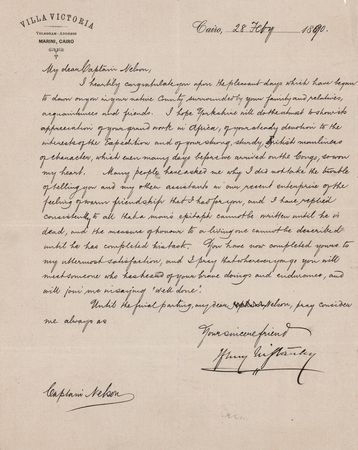 VILLA VICTORIA
TELEGRAM-ADDRESS
MARINI, CAIRO
Cairo, 28 Feby 1890.
My dear Captain Nelson,
I heartily congratulate you upon the pleasant days which have begun
to dawn on you in your native County surrounded by your family and relatives,
acquaintances and friends. I hope Yorkshire will do the utmost to show its
appreciation of your grand work in Africa, of your steady devotion to the
interests of the Expedition and of your strong, sturdy, British manliness
of character, which even many days before we arrived on the Congo, so won
my heart. Many people have asked me why I did not take the trouble
of telling you and my other assistants in our recent enterprise of the
feeling of warm friendship that I had for you, and I have replied
consistently to all that a man's epitaph cannot be written until he is
dead, and the measure of honour to a living one cannot be described
until he has completed his task. You have now completed yours to
my uttermost satisfaction, and I pray that wherever you go you will
meet someone who has heard of your brave doings and endurance, and
will join me in saying "Well done".
Until the final parting, my dear Nelson, pray consider
me always as
Your sincere friend
Henry M Stanley
Captain Nelson